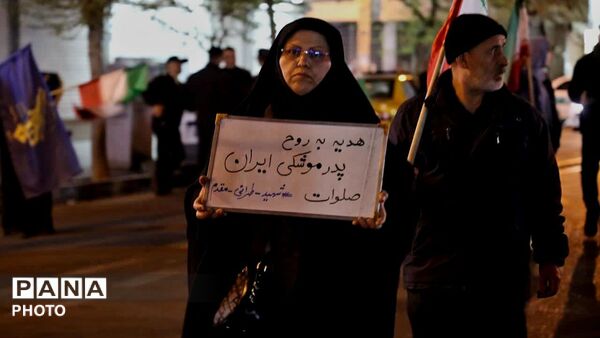 هدیه به روح
پدر موشکی ایران
صلوات شهید - طهرانی - مقدم
PANA
PHOTO